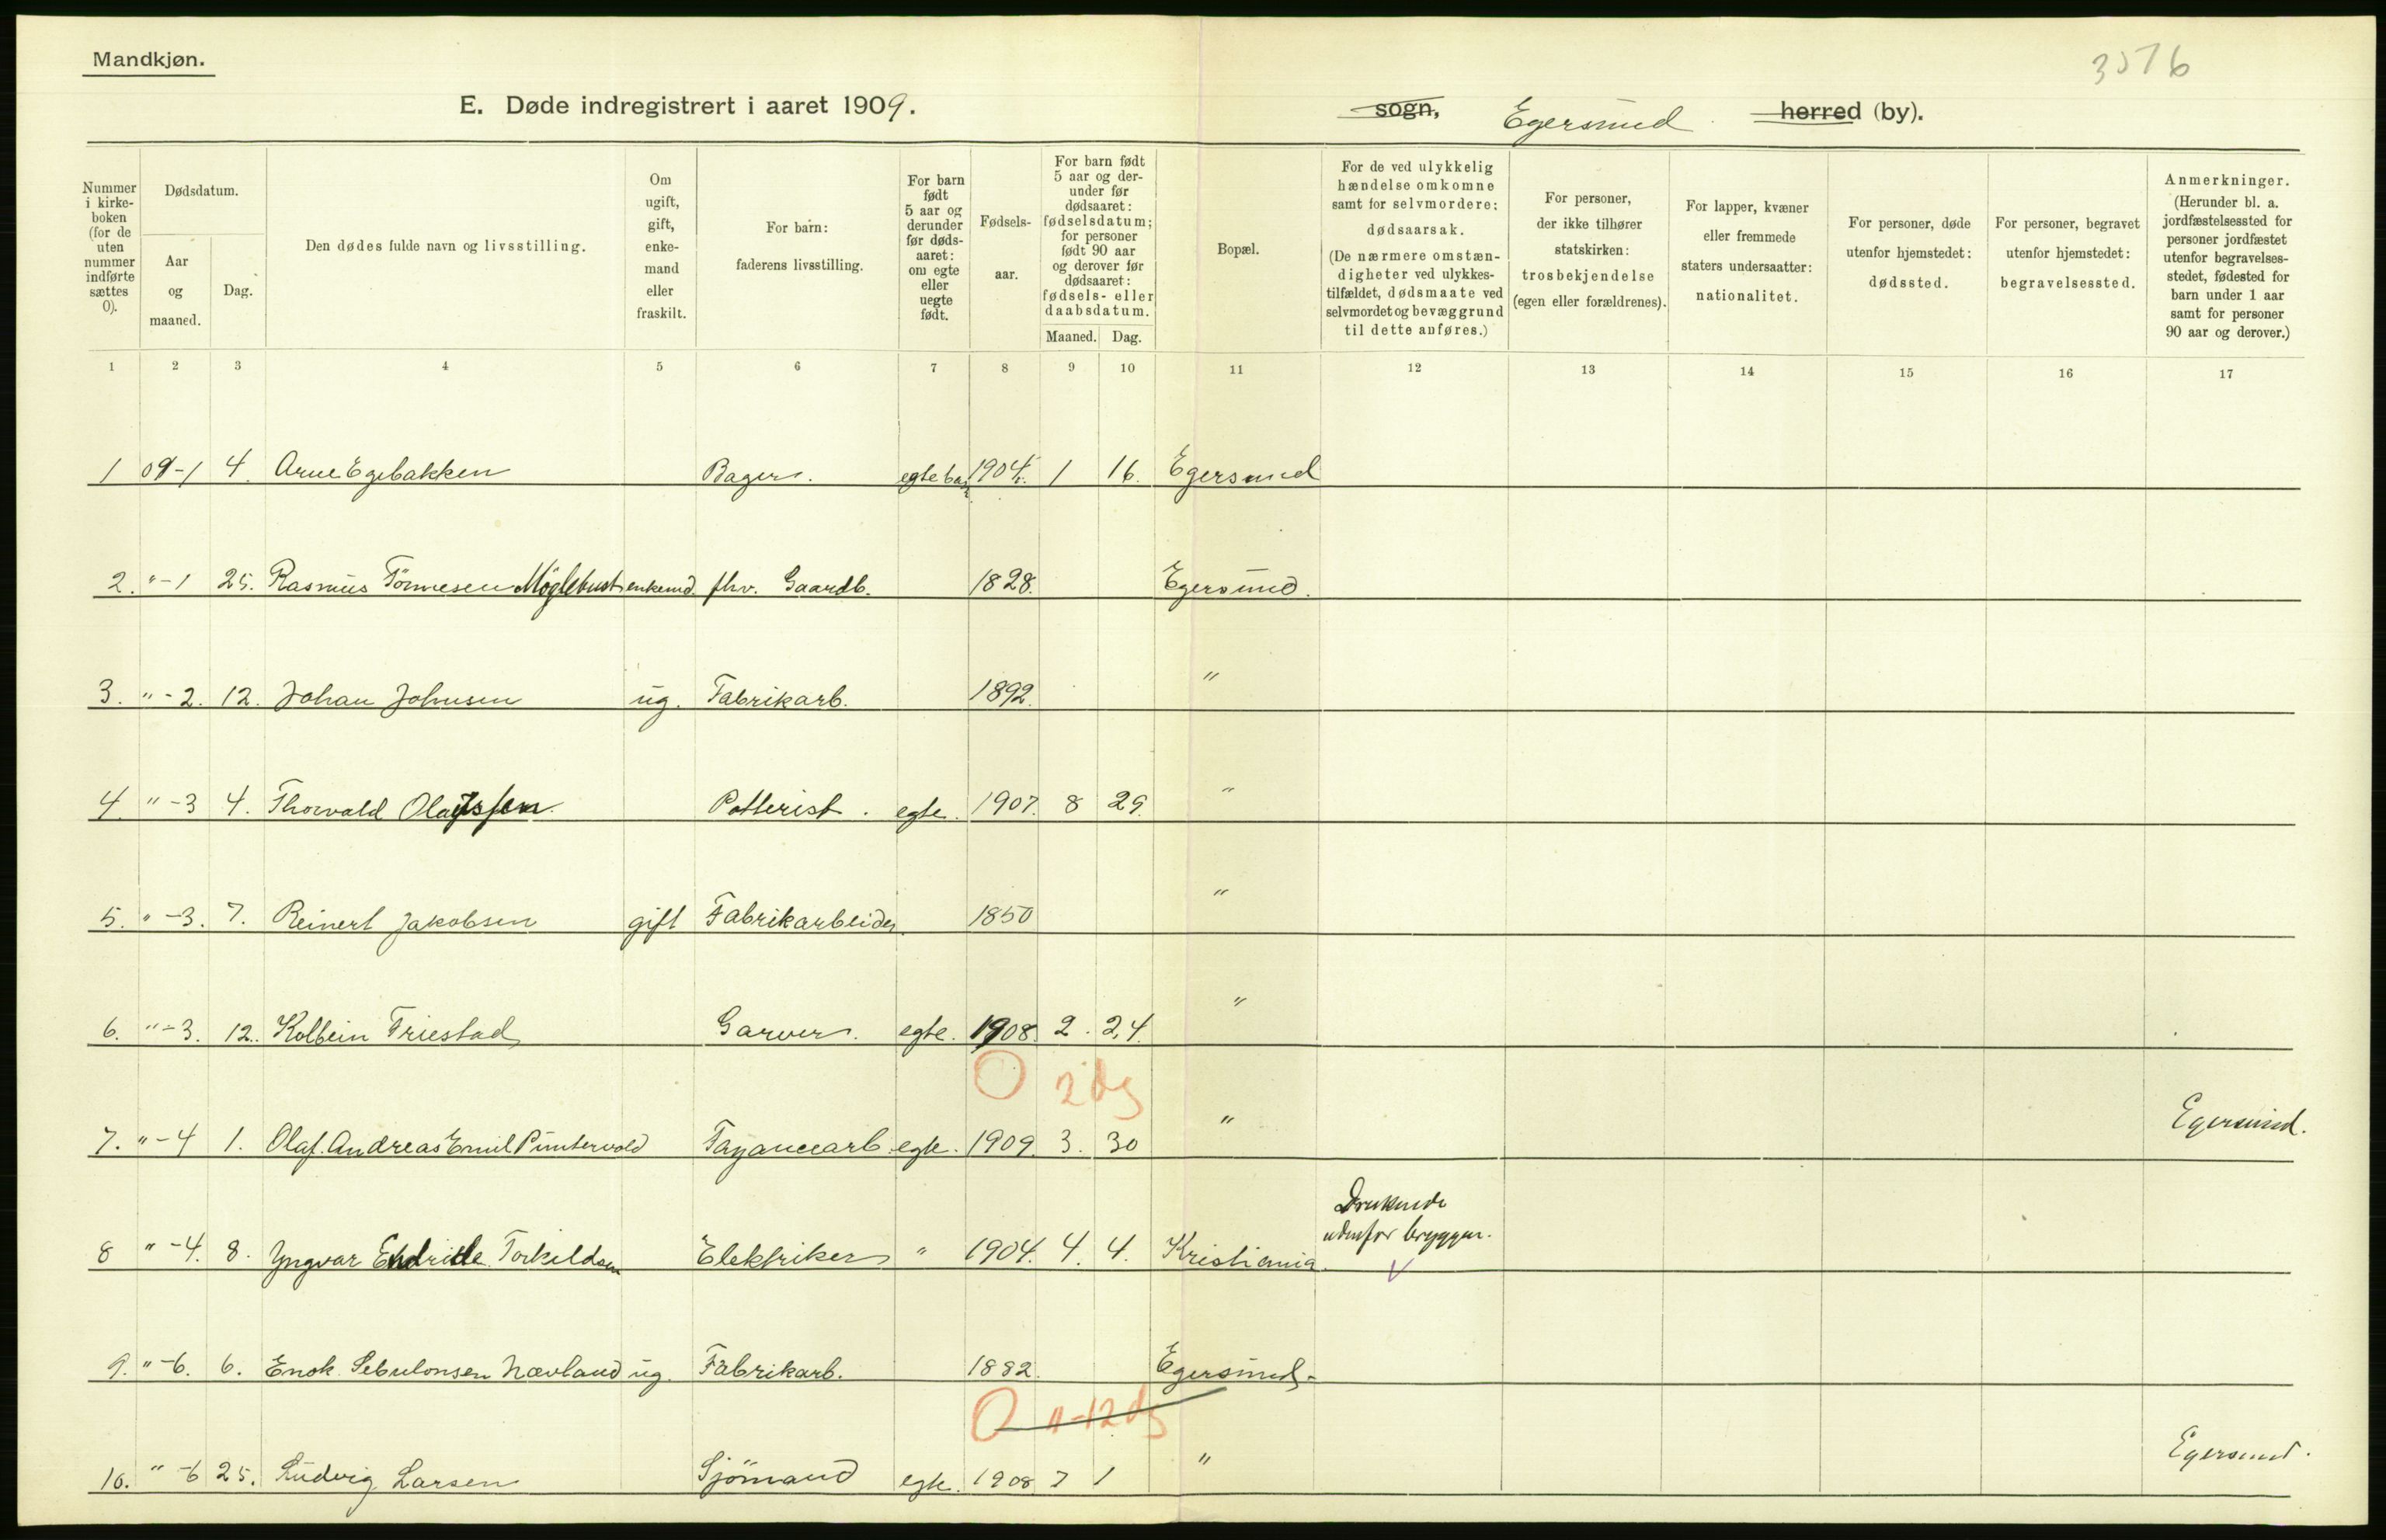 Mandkjøn.
3576
E. Døde indregistrert i aaret 1909.
sogn, Egersund herred (by).
Nummer i kirke-boken (for de uten nummer indførte sættes 0).
Dødsdatum.
Aar og maaned.
Dag.
Den dødes fulde navn og livsstilling.
Om ugift, gift, enke-mand eller fraskilt.
For barn: faderens livsstilling.
For barn født 5 aar og derunder før døds-aaret: om egte eller uegte født.
Fødsels-aar.
For barn født 5 aar og der-under før dødsaaret: fødselsdatum; for personer født 90 aar og derover før dødsaaret: fødsels- eller daabsdatum.
Maaned. Dag.
Bopæl.
For de ved ulykkelig hændelse omkomne samt for selvmordere: dødsaarsak. (De nærmere omstæn-digheter ved ulykkes-tilfældet, dødsmaate ved selvmordet og bevæggrund til dette anføres.)
For personer, der ikke tilhører statskirken: trosbekjendelse (egen eller forældrenes).
For lapper, kvæner eller fremmede staters undersaatter: nationalitet.
For personer, døde utenfor hjemstedet: dødssted.
For personer, begravet utenfor hjemstedet: begravelsessted.
Anmerkninger. (Herunder bl. a. jordfæstelsessted for personer jordfæstet utenfor begravelses-stedet, fødested for barn under 1 aar samt for personer 90 aar og derover.)
1 2 3 4 5 6 7 8 9 10 11 12 13 14 15 16 17
1 09-1 4. Arne Egebakken Bager. egte barn 1904. 1 16. Egersund
2. "-1 25. Rasmus Tönnesen Møglebust enkemd. fhv. Gaardb. 1828. Egersund.
3. "-2. 12. Johan Johnsen ug. Fabrikarb. 1892. "
4. "-3 4. Thorvald Olaussen Potterist. egte. 1907. 8 29. "
5. "-3. 7. Reinert Jakobsen gift Fabrikarbeider. 1850 "
6. "-3. 12. Kolbein Friestad Garver. egte. 1908. 2. 24. "
0 2 dg
7. "-4 1. Olaf Andreas Emil Puntervold Fayancearb. egte. 1909. 3. 30 " Egersund.
8 "-4. 8. Yngvar Endride Torkildsen Elektriker " 1904. 4. 4. Kristiania. Druknede udenfor bryggen.
9. "-6. 6. Enok Sebulonsen Nævland ug. Fabrikarb. 1882. Egersund.
0 11-12 dg
10. "-6 25. Ludvig Larsen Sjömand egte. 1908 7 1 " Egersund.